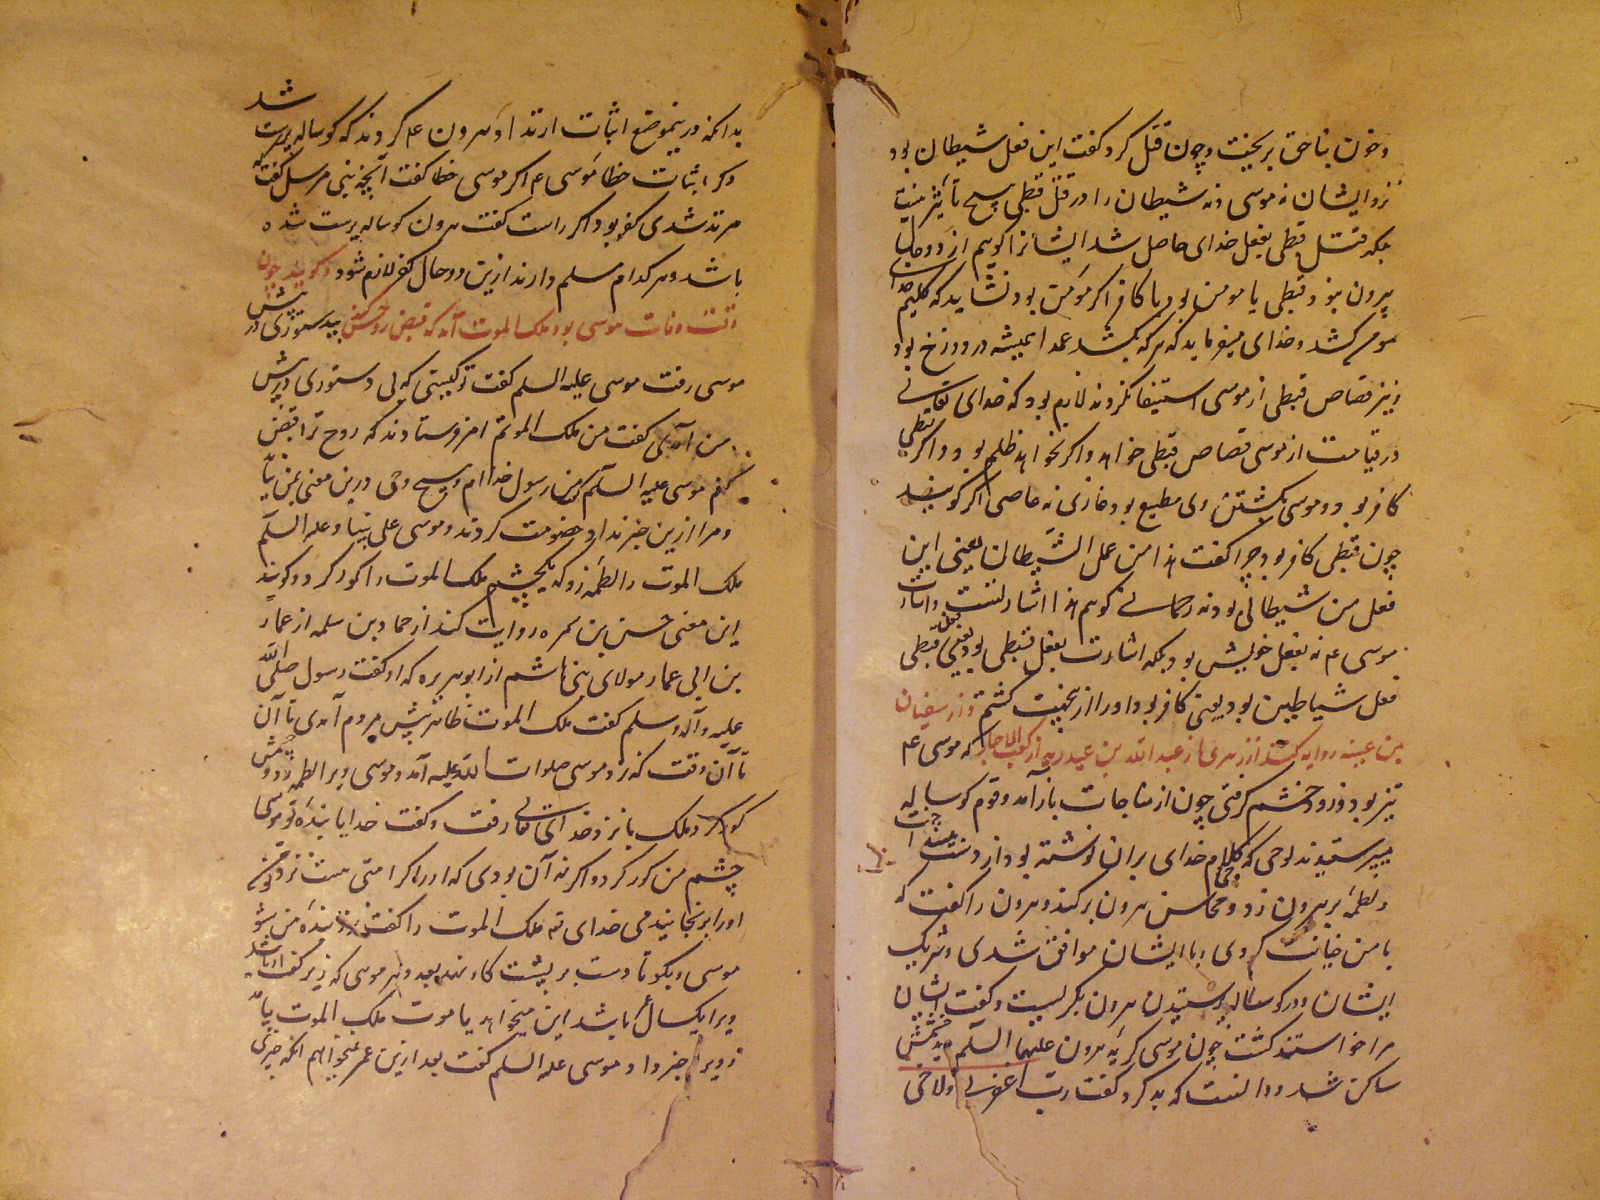 و خون بناحق بریخت و چون قتل کرد کفت این فعل شیطان بود
نزد ایشان نه موسی و نه شیطان را در قتل قبطی هیچ تأثیر نیست
بلکه قتل قبطی بفعل خدای حاصل شد ایشانرا کویم از دو حال
بیرون نبود قبطی یا مومن بود یا کافر اگر مومن بود نشاید که کلیم خدای
مومن کشد و خدای میفرماید که هر که بکشد عمدا همیشه در دوزخ بود
و نیز قصاص قبطی از موسی استیفا نکردند لازم بود که خدای تعالی
در قیامت از موسی قصاص قبطی خواهد و اکر نخواهد ظلم بود و اکر قبطی
کافر بود و موسی بکشتن وی مطیع بود و غازی نه عاصی اکر کویند
چون قبطی کافر بود چرا کفت هذا من عمل الشیطان یعنی این
فعل من شیطانی بود نه رحمانی کویم هذا اشارتست و اشارت
موسی ع م نه بفعل خویش بود بلکه اشارت بفعل قبطی بود یعنی فعل قبطی
فعل شیاطین بود یعنی کافر بود او را از بهر آن کشتم و از سفیان
بن عیینه روایه کنند از زهری از عبد الله بن از کعب الاحبار که موسی ع م
تیز بود و زود خشم کرفتی چون از مناجات باز آمد و قوم کوساله
میپرستیدند لوحی که کلام خدای بران نوشته بود از دست بینداخت
و لطمه بر هرون زد و محاسن هرون برکند و هرون را کفت که
با من خیانت کردی و با ایشان موافق شدی و شریک
ایشان در کوساله پرستیدن هرون بکریست و کفت ایشان
مرا خواستند کشت چون موسی کریه هرون علیهما السلم بدید خشمش
ساکن شد و دانست که بد کرد کفت رب اغفر لی و لاخی
بدانکه درینموضع اثبات ارتداد هرون ع م کردند که کوساله پرست شد
و کر اثبات خطا موسی ع م اکر موسی خطا کفت آنچه نبی مرسل کفت که
مرتد شدی کفر بود اکر راست کفت هرون کوساله پرست شده
باشد و هر کدام مسلم دارند ازین دو حال کفر لازم شود و کویند چون
وقت وفات موسی بود ملک الموت آمد که قبض روحش کند بیدستوری در پیش
موسی رفت موسی علیه السلم کفت تو کیستی که بی دستوری در پیش
من آمدی کفت من ملک الموتم مرا فرستادند که روح ترا قبض
کنم موسی علیه السلم کفت من رسول خدا ام و هیچ وحی درین معنی بمن نیامد
و مرا ازین خبر نداد خصومت کردند و موسی علی نبینا و علیه السلم
ملک الموت را لطمه زد که یکچشم ملک الموت را کور کرد و کویند
این معنی حسن بن سمره روایت کند از حماد بن سلمه از عمار
بن ابی عمار مولای بنی هاشم از ابو هریره که او کفت رسول صلی الله
علیه و آله و سلم کفت ملک الموت ظاهر پیش مردم آمدی تا آن
تا آن وقت که نزد موسی صلوات الله علیه آمد و موسی ویرا لطمه زد و چشمش
کور کرد و ملک باز نزد خدای تعالی رفت و کفت خدایا بنده تو موسی
چشم من کور کرد و اکر نه آن بودی که او را کرامتی هست نزد تو من
او را برنجانیدمی خدای ته ملک الموت را کفت نزد بنده من شو
موسی و بکو تا دست بر پشت کاو نهد بعدد هر موسی که زیر کف او باشد
ویرا یکسال باشد این میخواهد یا موت ملک الموت بیامد
و ویرا خبر داد موسی علیه السلم کفت بعد ازین عمر نمیخواهم انکه چیزی